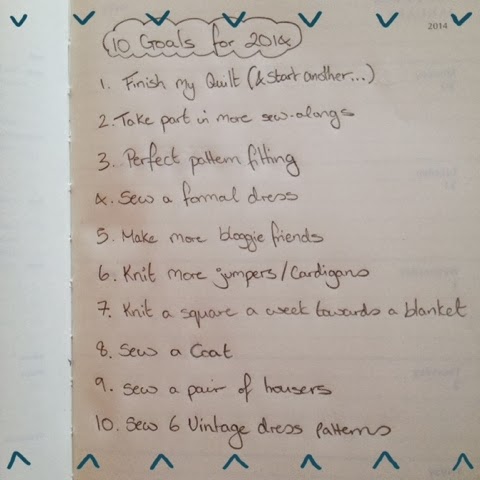 2014
10 Goals for 2014
1. Finish my Quilt (& start another...)
2. Take part in more sew-alongs
3. Perfect pattern fitting
4. Sew a formal dress
5. Make more bloggie friends
6. Knit more jumpers/Cardigans
7. Knit a square a week towards a blanket
8. Sew a Coat
9. Sew a pair of trousers
10. Sew 6 Vintage dress patterns